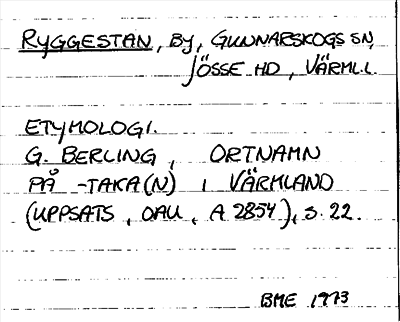 RYGGESTAN, BY, GUNNARSKOGS SN,
JÖSSE HD, VÄRML.L.
ETYMOLOGI.
G. BERLING, ORTNAMN
PÅ -TAKA(N) I VÄRMLAND
(UPPSATS, OAU, A 2854), S. 22.
BME 1973